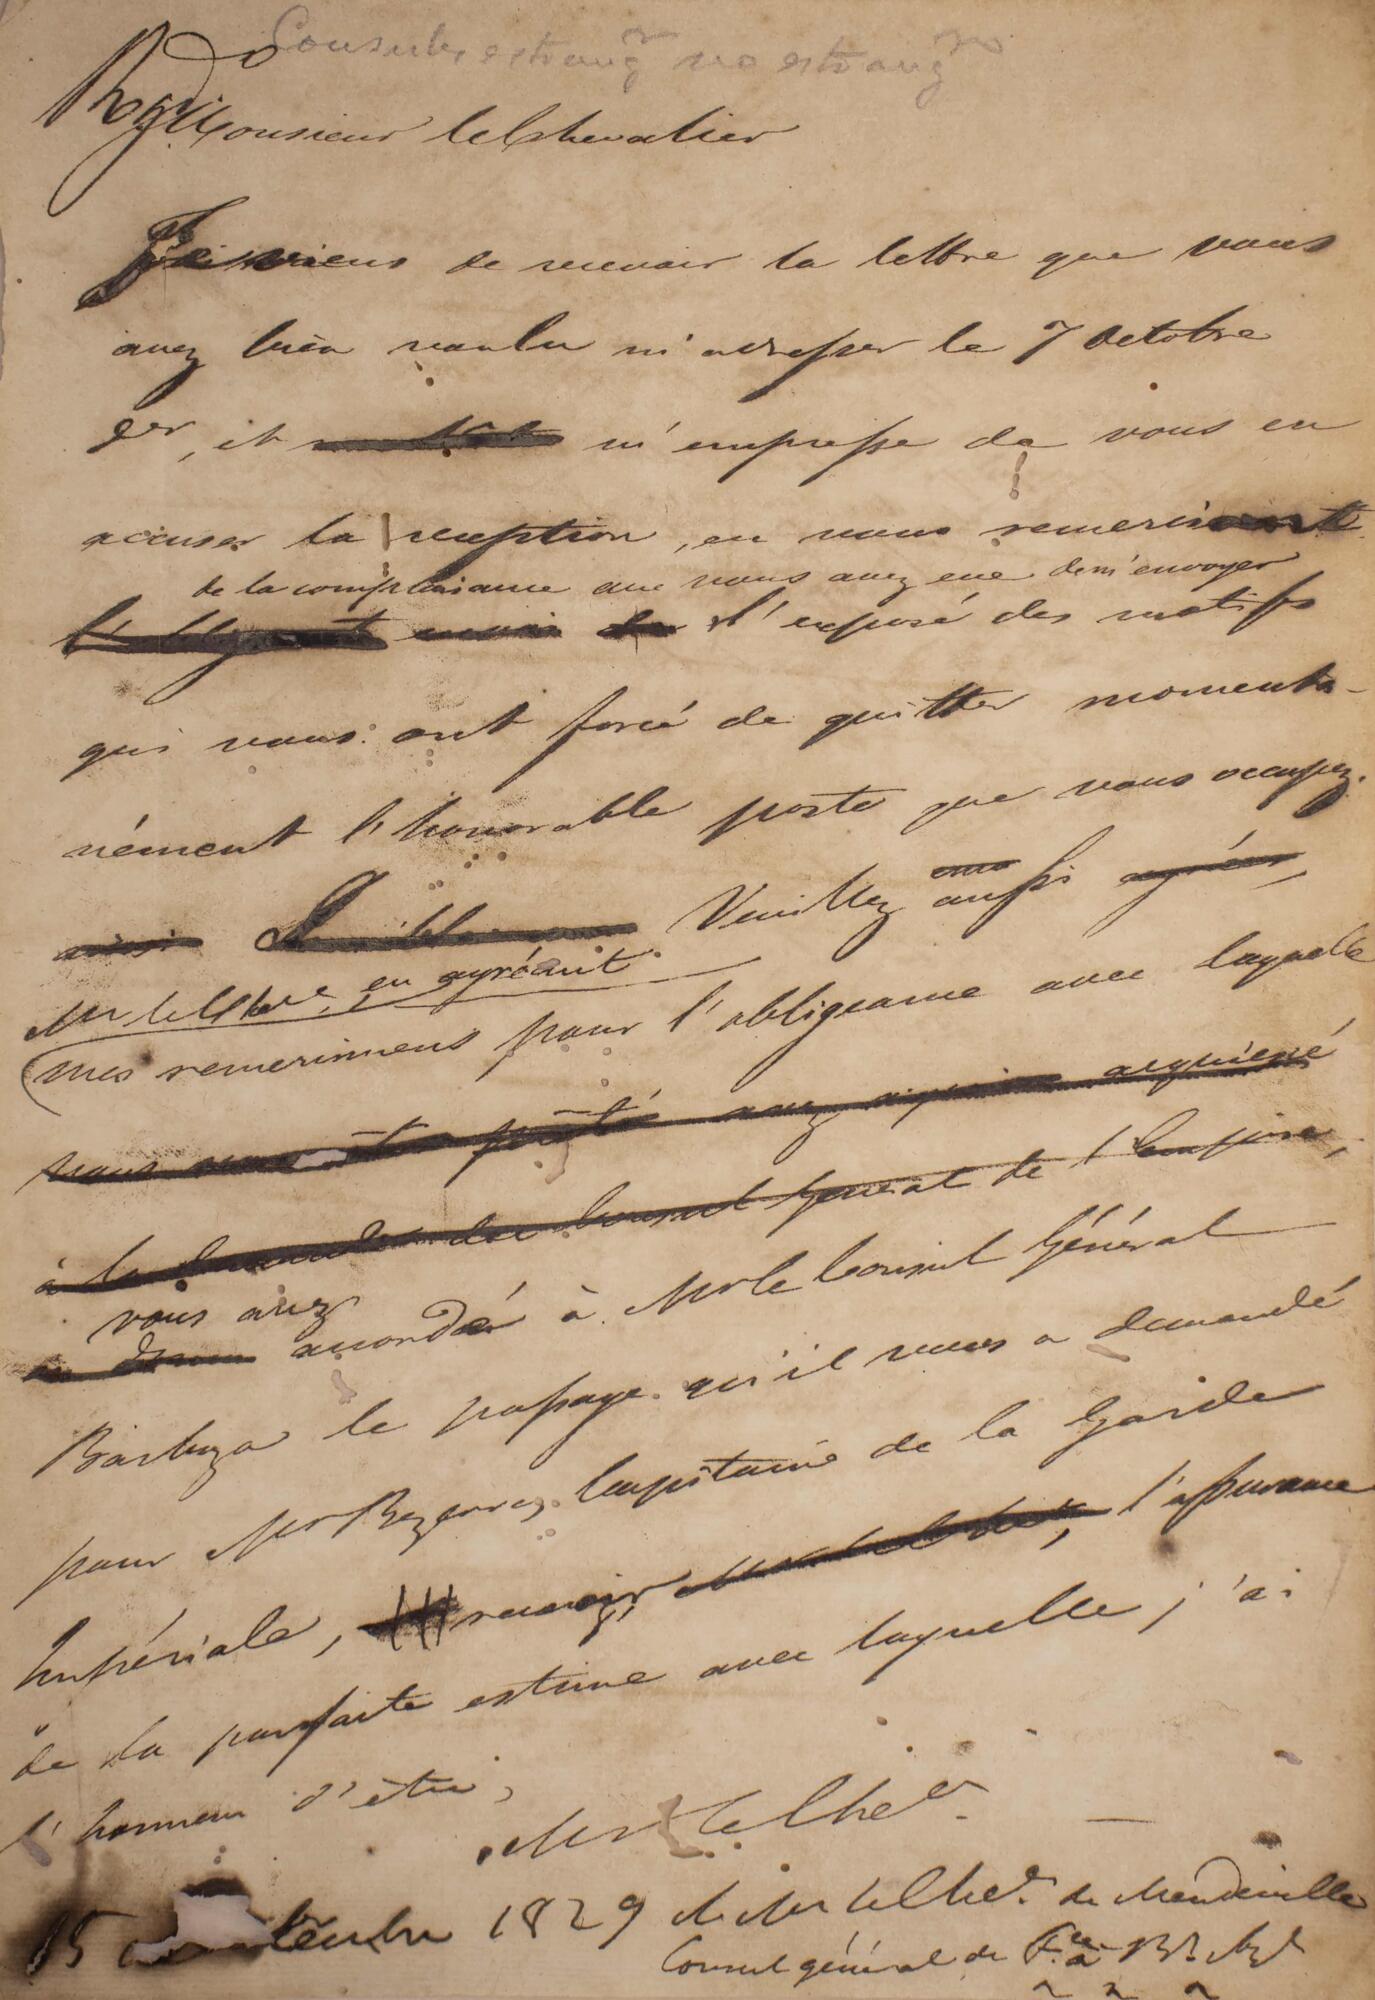 Consules estrangro no estrangro
Rdo
Monsieur le Chevalier
Je viens de recevoir la lettre que vous
avez bien voulu m'adresser le 7 Octobre
der, et m'empresse de vous en
accuser la reception, en vous remerciant
de la complaisance que vous avez eue de m'envoyer
envoi de l'exposé des motifs
qui vous ont forcé de quitter momenta-
nément l'honorable poste que vous occupez.
ainsi Veuillez aussi agréer,
Mr le Cher en agréant
mes remercimens pour l'obligeance avec laquelle
vous avez acquiescé
à la demande du Consul General de l'Empire,
vous avez
accordé à Mr le Consul Général
Barboza le passage qu'il vous a demandé
pour Mr Bezerra, Capitaine de la Garde
Impériale, recevoir, Mr le Cher, l'assurance
de la parfaite estime avec laquelle j'ai
l'honneur d'être,
Mr le Cher
15 1829 à Mr le Cher de Mendeville
Consul général de Fce à Bs Ays